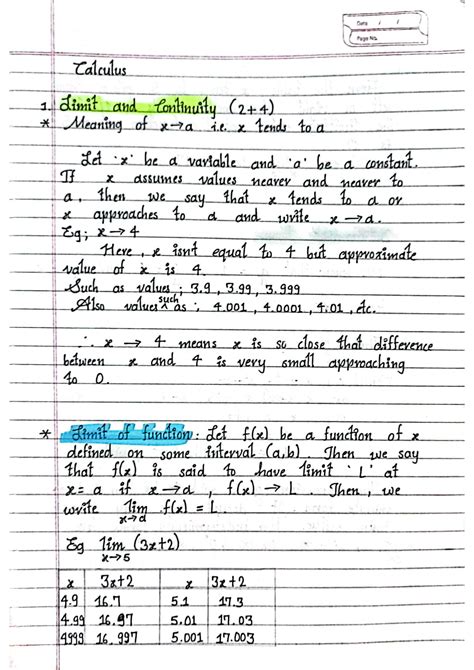 Date / /
Page No.
Calculus
1. Limit and Continuity (2+4)
* Meaning of x→a i.e. x tends to a
Let 'x' be a variable and 'a' be a constant.
If x assumes values nearer and nearer to
a, then we say that x tends to a or
x approaches to a and write x→a.
Eg; x→4
Here, x isn't equal to 4 but approximate
value of x is 4.
Such as values; 3.9, 3.99, 3.999
Also values such as; 4.001, 4.0001, 4.01, etc.
∴ x → 4 means x is so close that difference
between x and 4 is very small approaching
to 0.
* Limit of function: Let f(x) be a function of x
defined on some interval (a,b). Then we say
that f(x) is said to have limit 'L' at
x=a if x→a, f(x) → L. Then, we
write lim f(x) = L.
x→a
Eg lim (3x+2)
x→5
x 3x+2 x 3x+2
4.9 16.7 5.1 17.3
4.99 16.97 5.01 17.03
4999 16.997 5.001 17.003